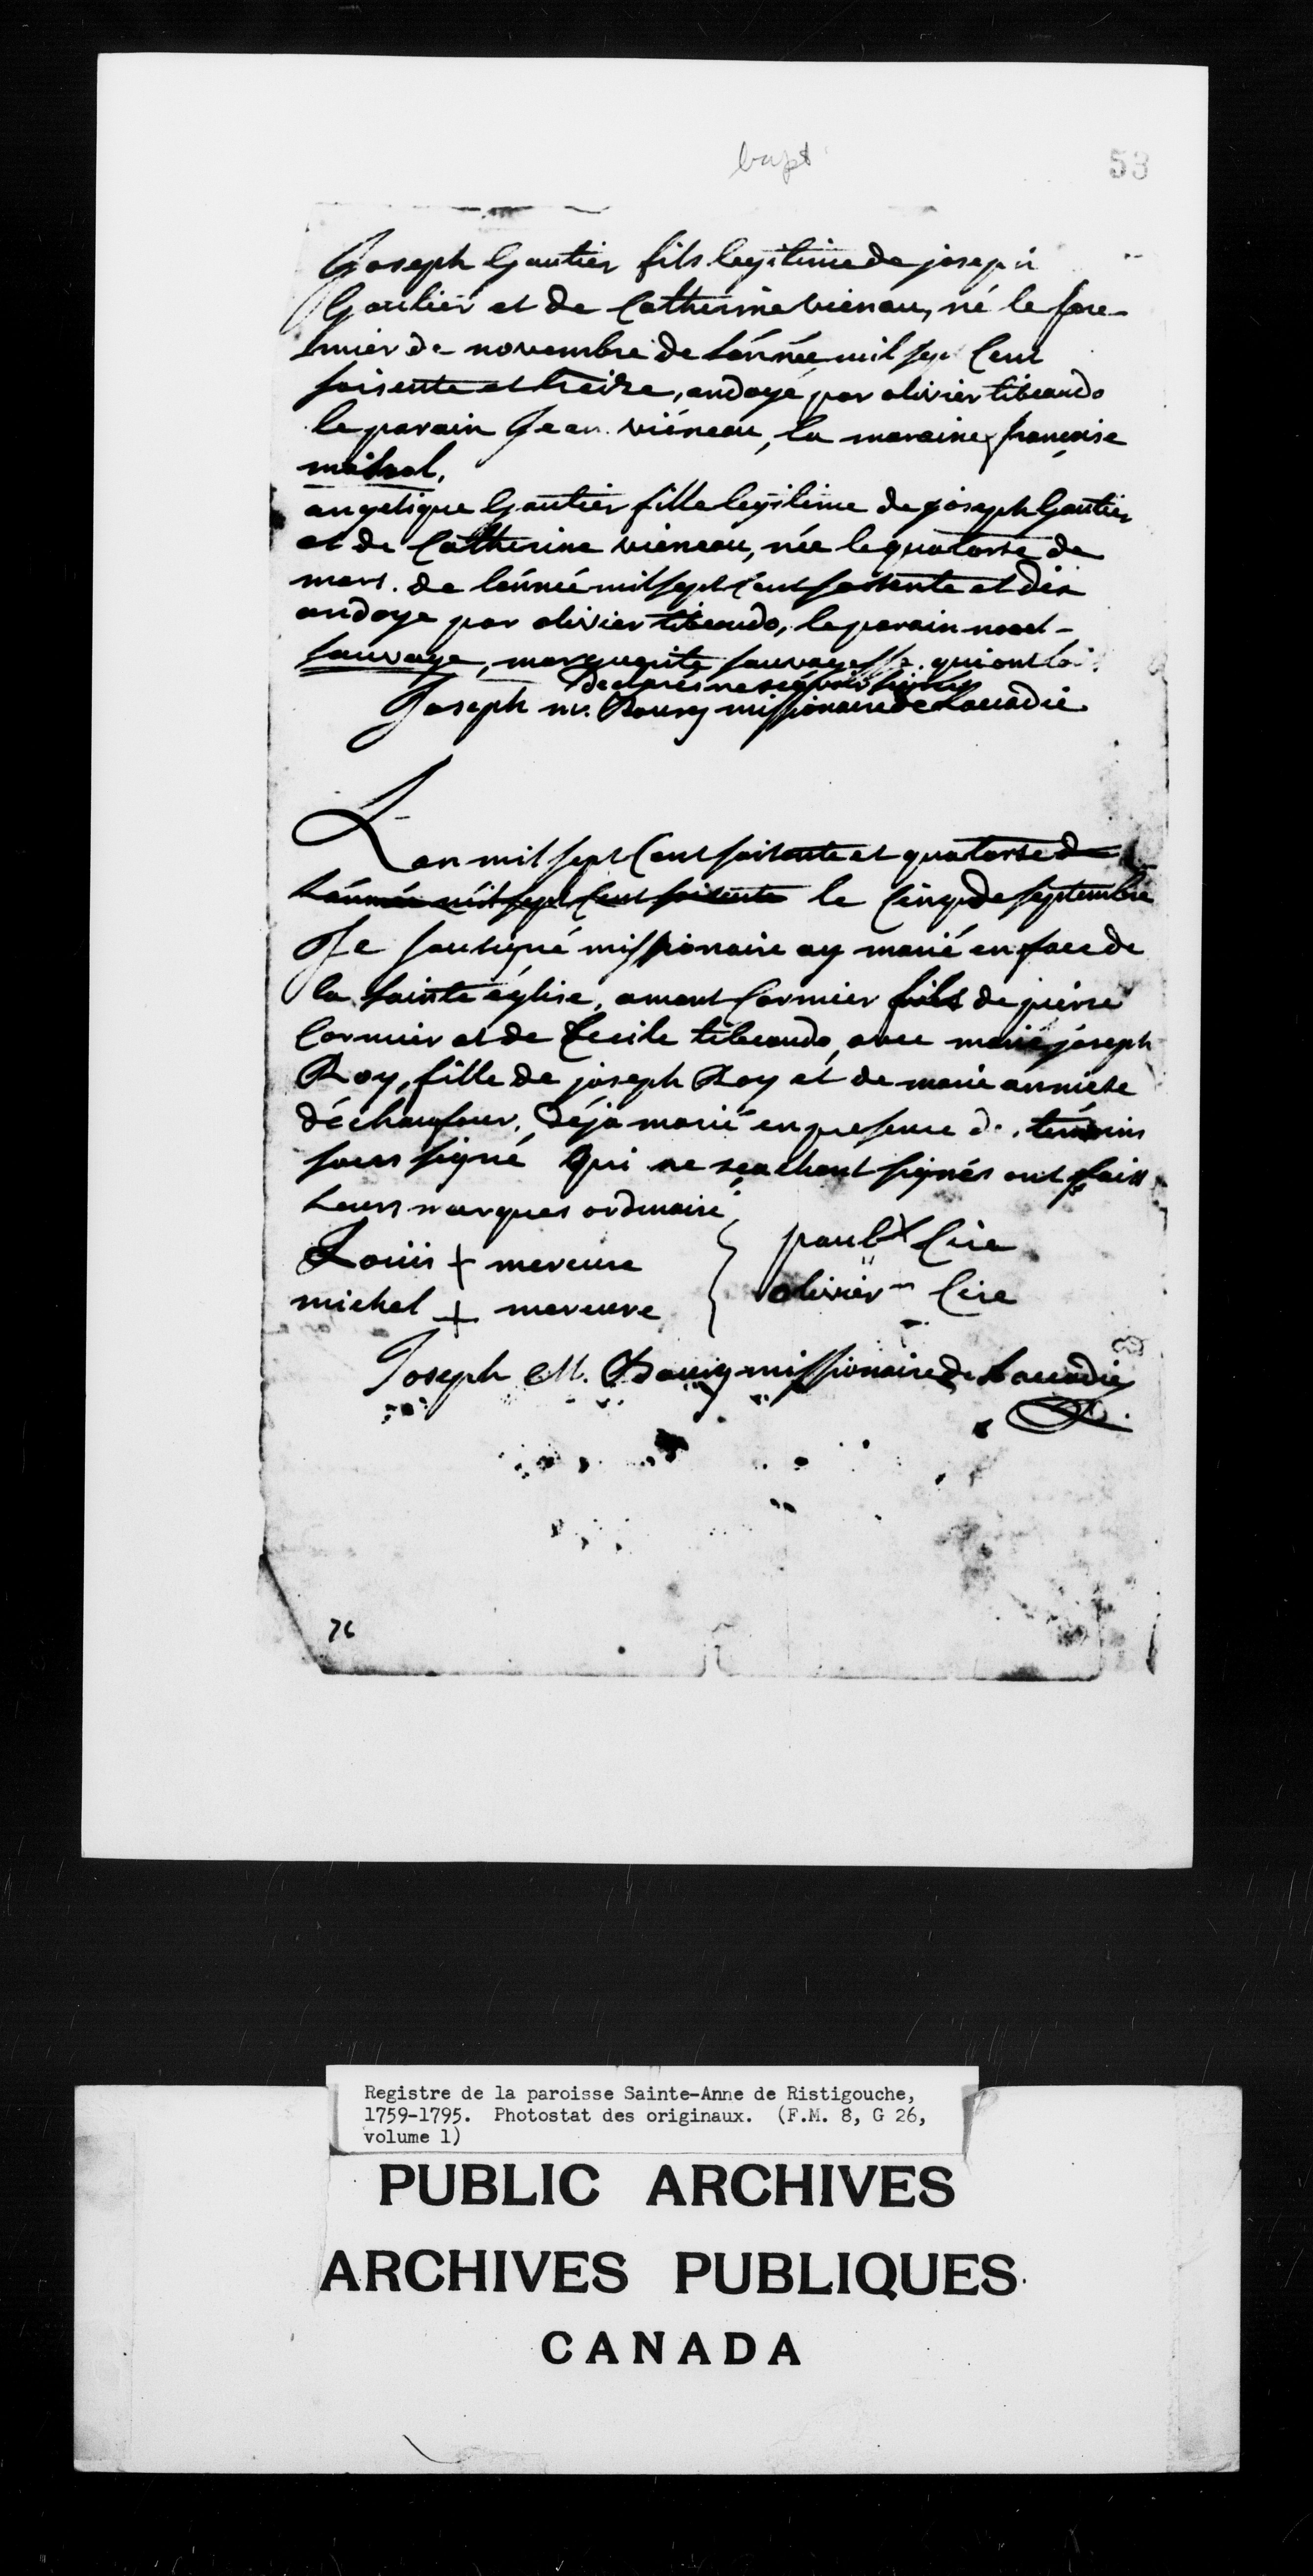 bapt
53
Joseph Gautier fils legitime de joseph
Gautier et de Catherine vienau, né le pre-
mier de novembre de lánnée mil sept Cent
soisente et treize, andoyé par olivier tibeaudo
le parain Jean viéneau, la maraine françoise

angelique Gautier fille legitime de joseph Gautier
et de Catherine vieneau, née le quatorse de
mars. de lánnée mil sept Cent soisente et dix
andoye par olivier tibeaudo, le parain noel-
sauvage, marguerite sauvagesse. qui ont
declarés ne sçavoir signer
Joseph m. Bourg missionaire de Laccadie
L'an mil sept Cent soisente et quatorse de
Lánnée mil sept Cent soisente le Cinq de septembre
Je sousigné missionaire ay marié en face de
la sainte église, amant Cormier fils de pierre
Cormier et de Cecile tibeaudo, avec marie joseph
Roy, fille de joseph Roy et de marie anniese
déchaufour. Déja marié en presence de témoins
sous signé qui ne seachant signés ont fait
Leurs marques ordinaire
Loüis + mercure } paul x Cire
michel + mercure } olivier Cire
Joseph M. Bourg missionaire de Laccadie
76
Registre de la paroisse Sainte-Anne de Ristigouche,
1759-1795. Photostat des originaux. (F.M. 8, G 26,
volume 1)
PUBLIC ARCHIVES
ARCHIVES PUBLIQUES
CANADA